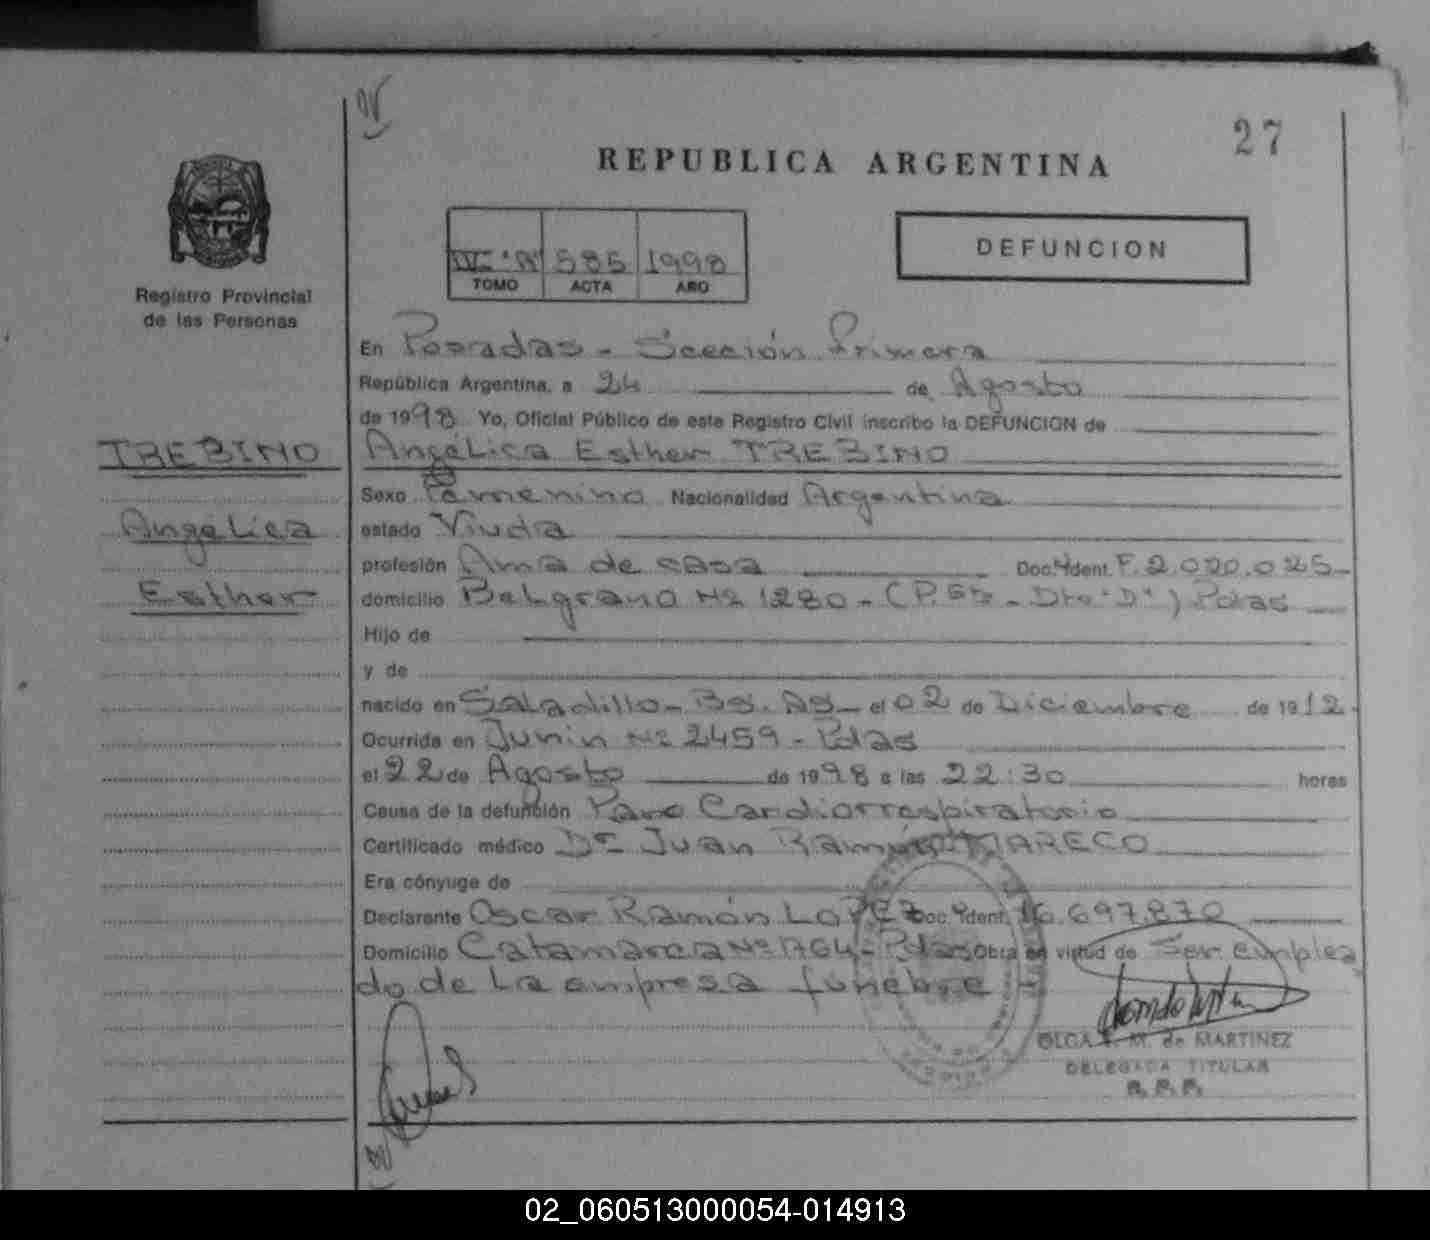 27
REPUBLICA ARGENTINA
585 1998
TOMO ACTA AÑO
DEFUNCION
Registro Provincial
de las Personas
En Posadas - Sección Primera
República Argentina, a 24 de Agosto
de 1998 Yo, Oficial Público de este Registro Civil inscribo la DEFUNCION de
TREBINO
Angélica Esther TREBINO
Sexo Femenino Nacionalidad Argentina
Angélica
estado Viuda
profesión Ama de casa Doc. Ident. F. 2.020.025-
Esther
domicilio Belgrano Nº 1280 - (P. 5to - Dto "D") Pdas
Hijo de
y de
nacido en Saladillo - Bs. As - el 02 de Diciembre de 1912.
Ocurrida en Junin Nº 2459 - Pdas
el 22 de Agosto de 1998 a las 22:30 horas
Causa de la defunción Paro Cardiorrespiratorio
Certificado médico Dr Juan Ramón MARECO
Era cónyuge de
Declarante Oscar Ramón LOPEZ Doc. Ident. 16.697.870
Domicilio Catamarca Nº 1764 - Pdas Obra en virtud de Ser emplea
do de la empresa fúnebre -
OLGA M. de MARTINEZ
DELEGADA TITULAR
R. P. P.
02_060513000054-014913